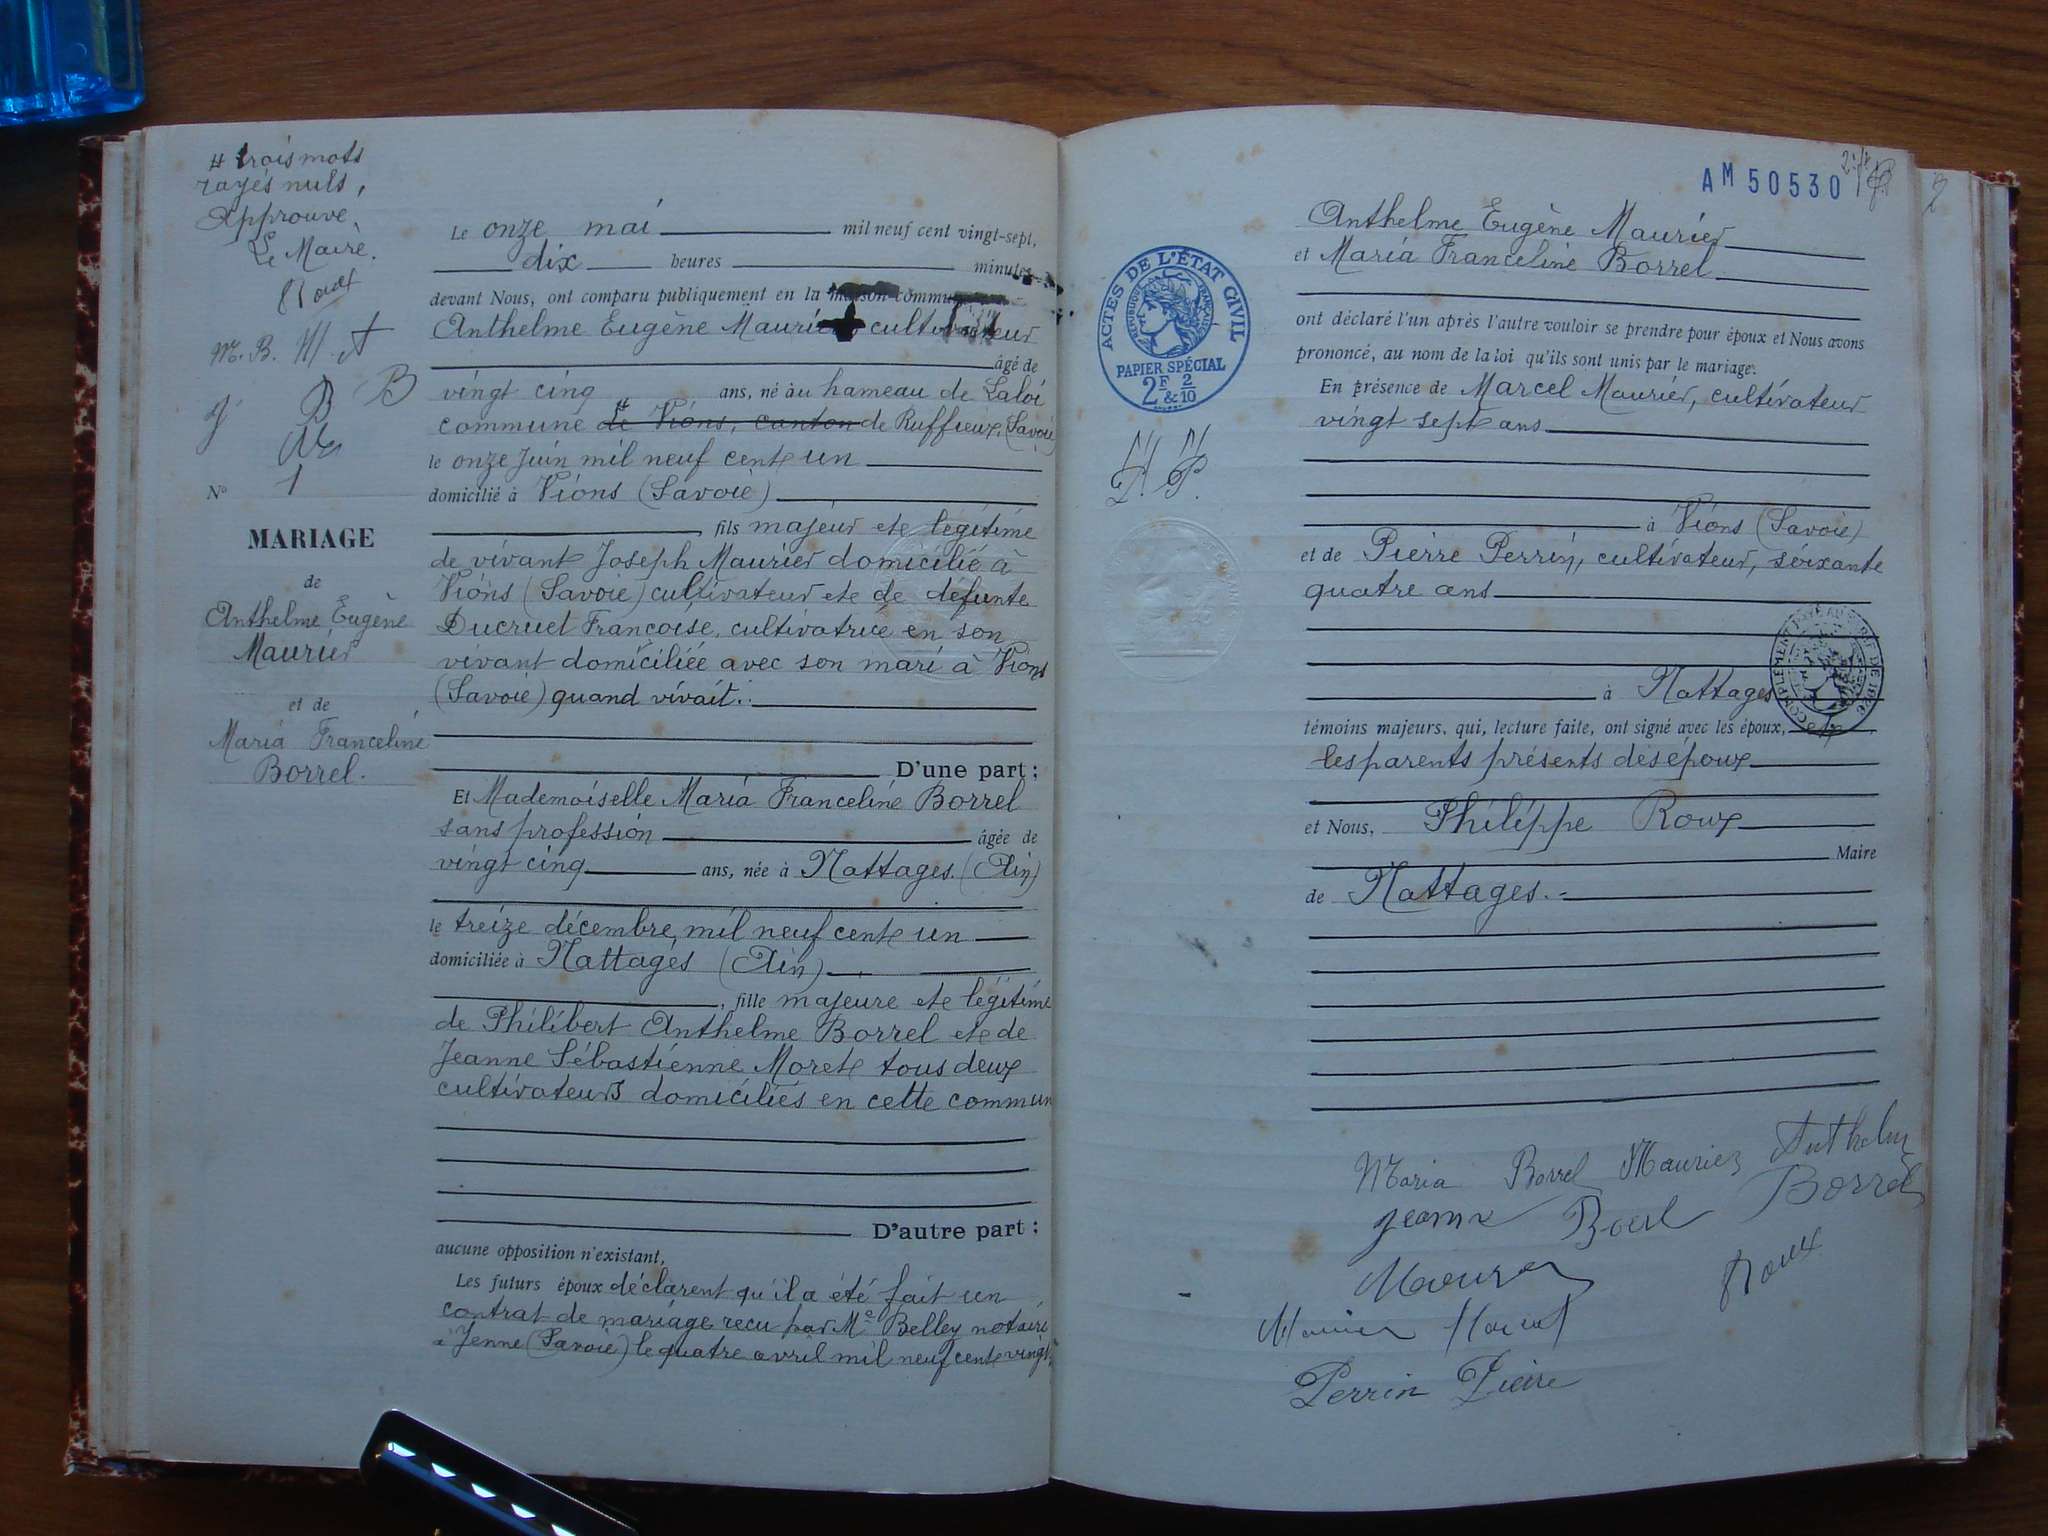 # trois mots
rayés nuls,
Approuvé.
Le Maire.
Roux
M. B. M. A
J B B
N° 1
MARIAGE
de
Anthelme Eugène
Maurier
et de
Maria Franceline
Borrel.
Le onze mai mil neuf cent vingt-sept,
dix heures minutes
devant Nous, ont comparu publiquement en la maison commune
Anthelme Eugène Maurier cultivateur
âgé de
vingt cinq ans, né àu hameau de Laloi
commune de Vions, canton de Ruffieux (Savoie)
le onze Juin mil neuf cent un
domicilié à Vions (Savoie)
, fils majeur et légitime
de vivant Joseph Maurier domicilié à
Vions (Savoie) cultivateur et de défunte
Ducruet Françoise, cultivatrice en son
vivant domiciliée avec son mari à Vions
(Savoie) quand vivait.
D'une part :
Et Mademoiselle Maria Franceline Borrel
sans profession âgée de
vingt cinq ans, née à Nattages. (Ain)
le treize décembre, mil neuf cent un
domiciliée à Nattages (Ain)
, fille majeure et légitime
de Philibert Anthelme Borrel et de
Jeanne Sébastienne Moret tous deux
cultivateurs domiciliés en cette commun
D'autre part :
aucune opposition n'existant,
Les futurs époux déclarent qu'il a été fait un
contrat de mariage recu par Me Belley notaire
à Yenne (Savoie) le quatre avril mil neuf cent vingt
AM 50530
2
ACTES DE L'ÉTAT CIVIL
RÉPUBLIQUE FRANÇAISE
PAPIER SPÉCIAL
2F & 2/10
Anthelme Eugène Maurier
et Maria Franceline Borrel
ont déclaré l'un après l'autre vouloir se prendre pour époux et Nous avons
prononcé, au nom de la loi qu'ils sont unis par le mariage.
En présence de Marcel Maurier, cultivateur
vingt sept ans
à Vions (Savoie)
et de Pierre Perrin, cultivateur, soixante
quatre ans
à Nattages
témoins majeurs, qui, lecture faite, ont signé avec les époux, et
les parents présents des époux
et Nous, Philippe Roux
Maire
de Nattages.
Maria Borrel Maurier Anthelm
Jeanne Borel Borrel
Roux
Maurier
Perrin Pierre